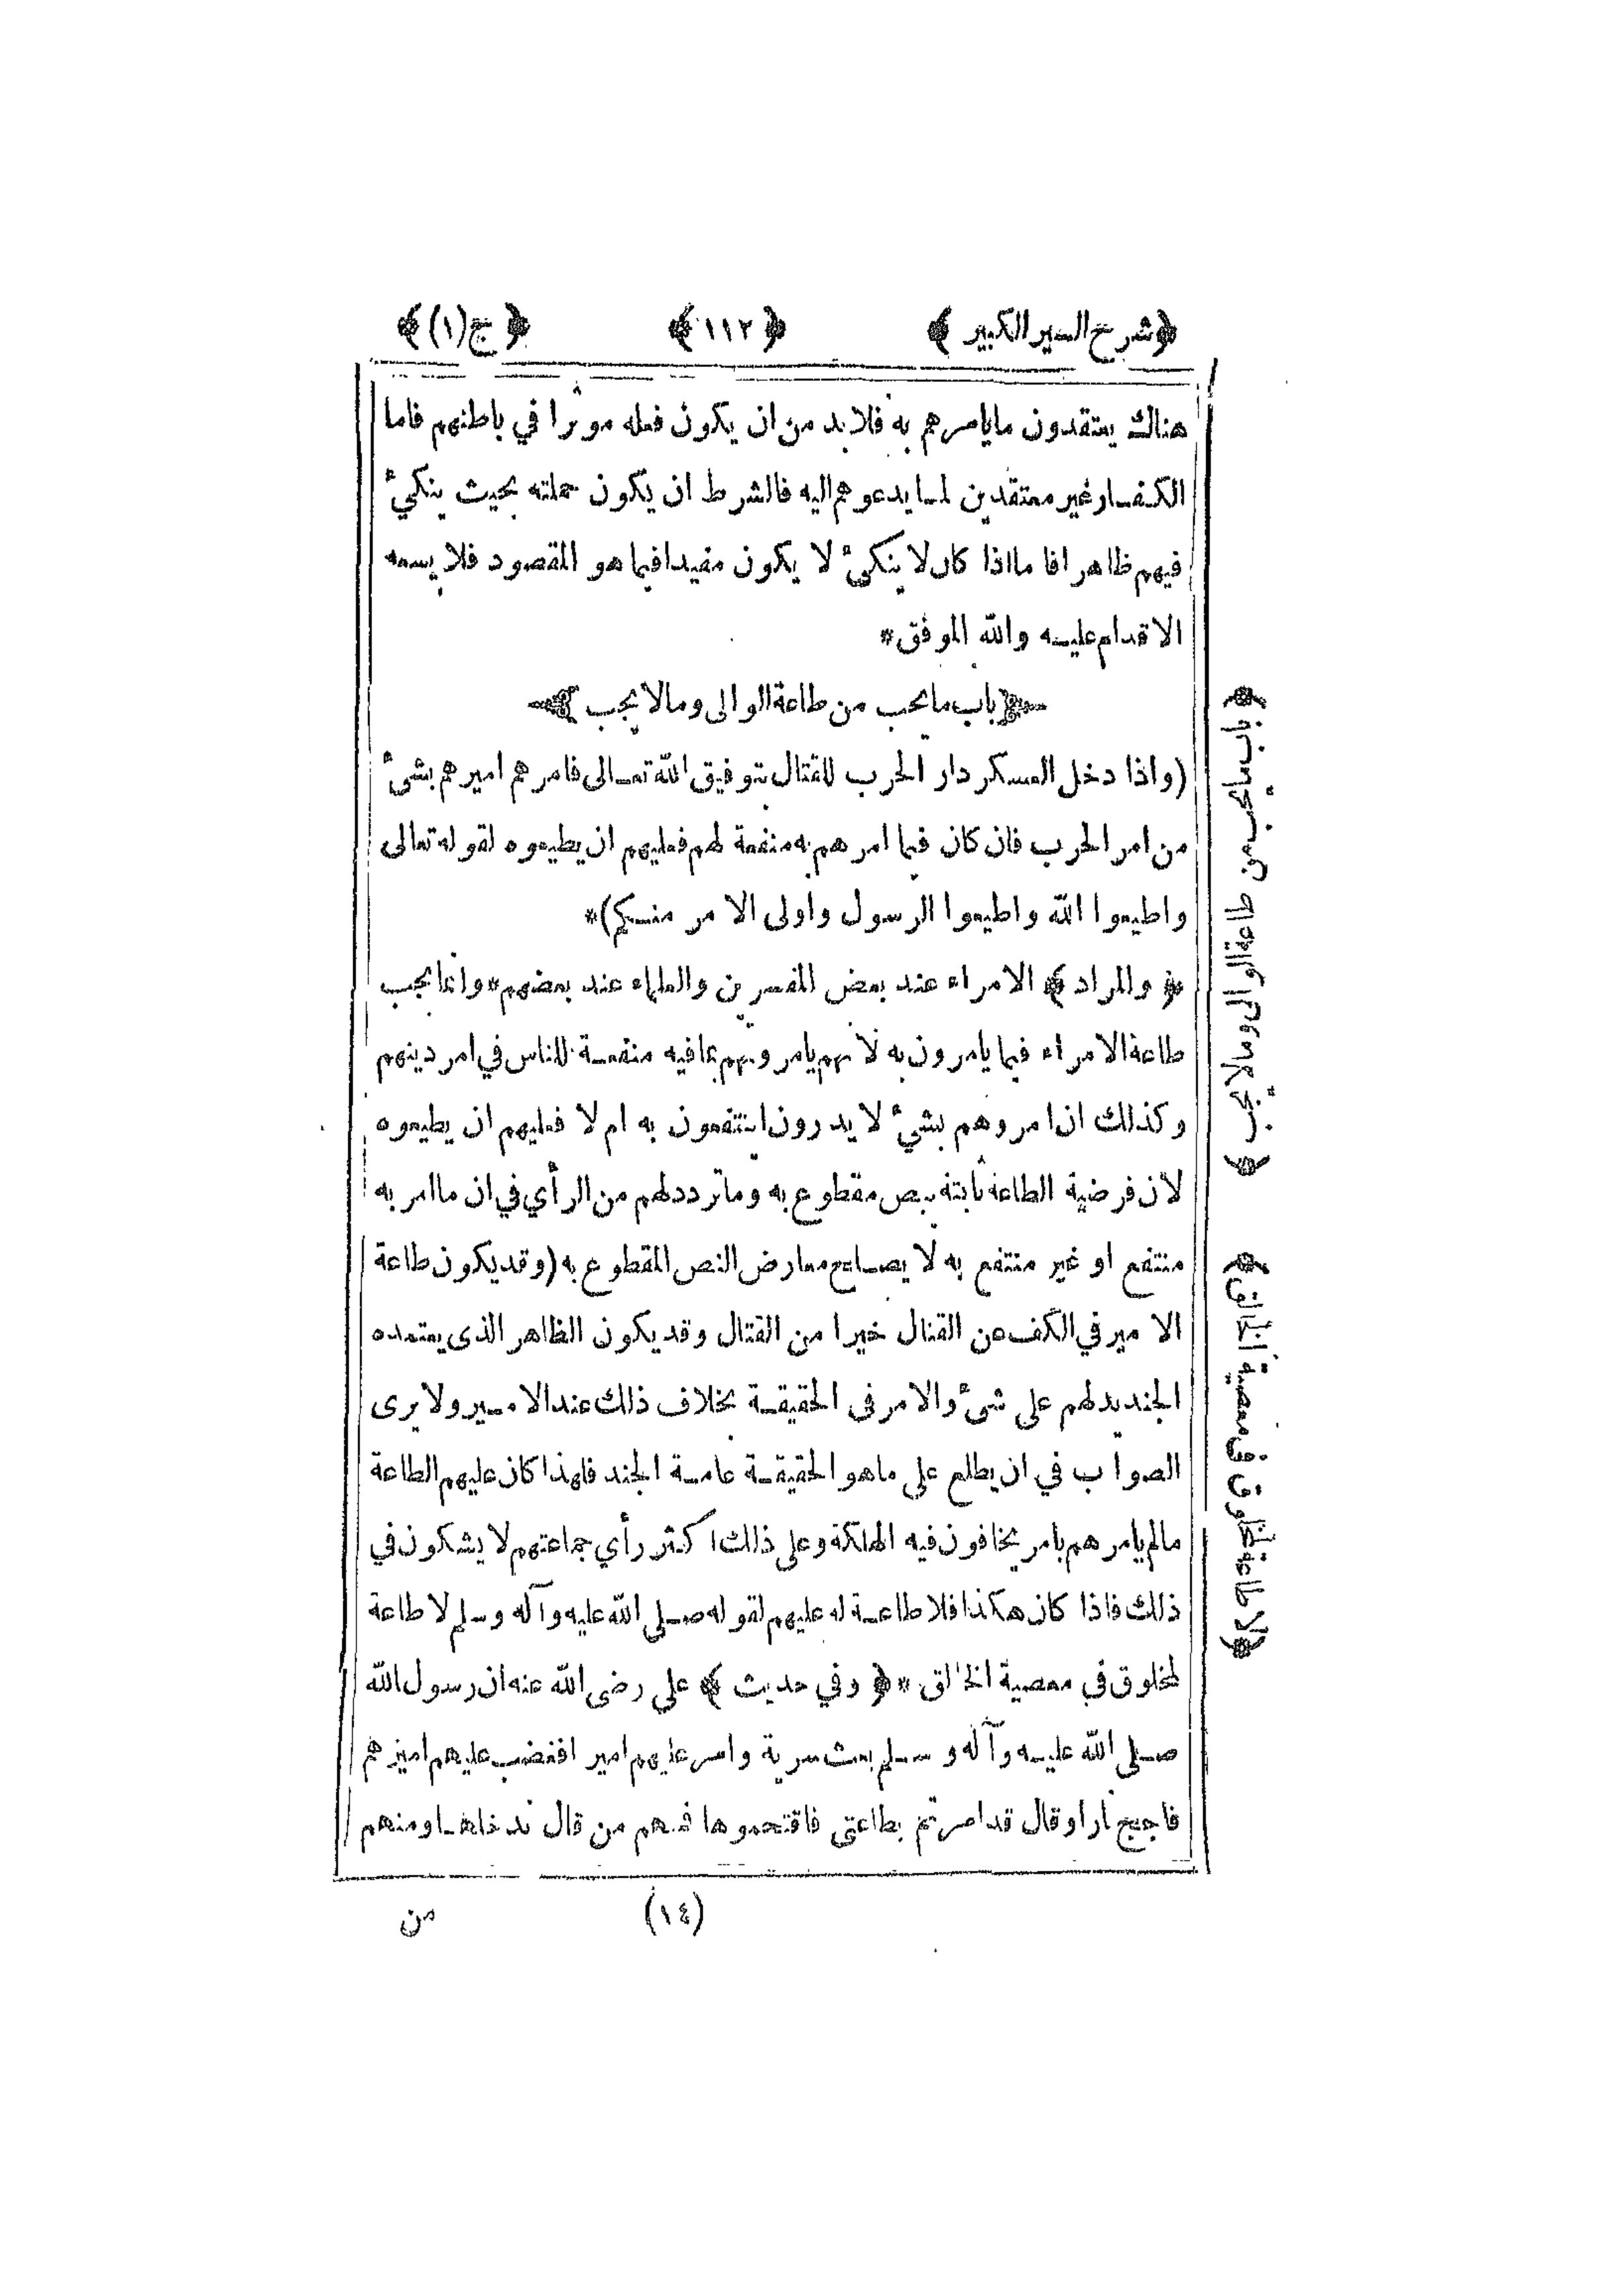 ﴿شرح السير الكبير﴾ ﴿١١٢﴾ ﴿ج(١)﴾
هناك يعتقدون مايامرهم به فلابد من ان يكون فعله موثرا في باطنهم فاما
الكفار غير معتقدين لما يدعوهم اليه فالشرط ان يكون حملته بحيث ينكيء
فيهم ظاهرا فاما اذا كان لا ينكيء لا يكون مفيدا فيما هو المقصود فلا يسعه
الاقدام عليه والله الموفق*
﴿باب مايجب من طاعة الوالى ومالا يجب﴾
(واذا دخل العسكر دار الحرب للقتال بتوفيق الله تعالى فامرهم اميرهم بشيء
من امر الحرب فان كان فيما امرهم به منفعة لهم فعليهم ان يطيعوه لقوله تعالى
واطيعوا الله واطيعوا الرسول واولى الامر منكم)*
﴿والمراد﴾ الامراء عند بعض المفسرين والعلماء عند بعضهم* وانما يجب
طاعة الامراء فيما يامرون به لانهم يامرونهم بما فيه منفعة للناس في امر دينهم
وكذلك ان امروهم بشيء لا يدرون اينتفعون به ام لا فعليهم ان يطيعوه
لان فرضية الطاعة ثابتة بنص مقطوع به وما تردد لهم من الرأي في ان ما امر به
منتفع او غير منتفع به لا يصلح معارض النص المقطوع به (وقد يكون طاعة
الامير في الكف عن القتال خيرا من القتال وقد يكون الظاهر الذى يعتمده
الجند يدلهم على شيء والامر في الحقيقة بخلاف ذلك عند الامير ولا يرى
الصواب في ان يطلع على ماهو الحقيقة عامة الجند فلهذا كان عليهم الطاعة
مالم يامرهم بامر يخافون فيه الهلكة وعلى ذلك اكثر رأي جماعتهم لا يشكون في
ذلك فاذا كان هكذا فلا طاعة له عليهم لقوله صلى الله عليه وآله وسلم لا طاعة
لمخلوق في معصية الخالق *﴿وفي حديث﴾ علي رضى الله عنه ان رسول الله
صلى الله عليه وآله وسلم بعث سرية وامر عليهم اميرا فغضب عليهم اميرهم
فاجج نارا وقال قد امرتم بطاعتى فاقتحموها فمنهم من قال ندخلها ومنهم
(١٤)
من
﴿باب مايجب من طاعة الوالى ومالا يجب﴾
﴿لا طاعة لمخلوق في معصية الخالق﴾